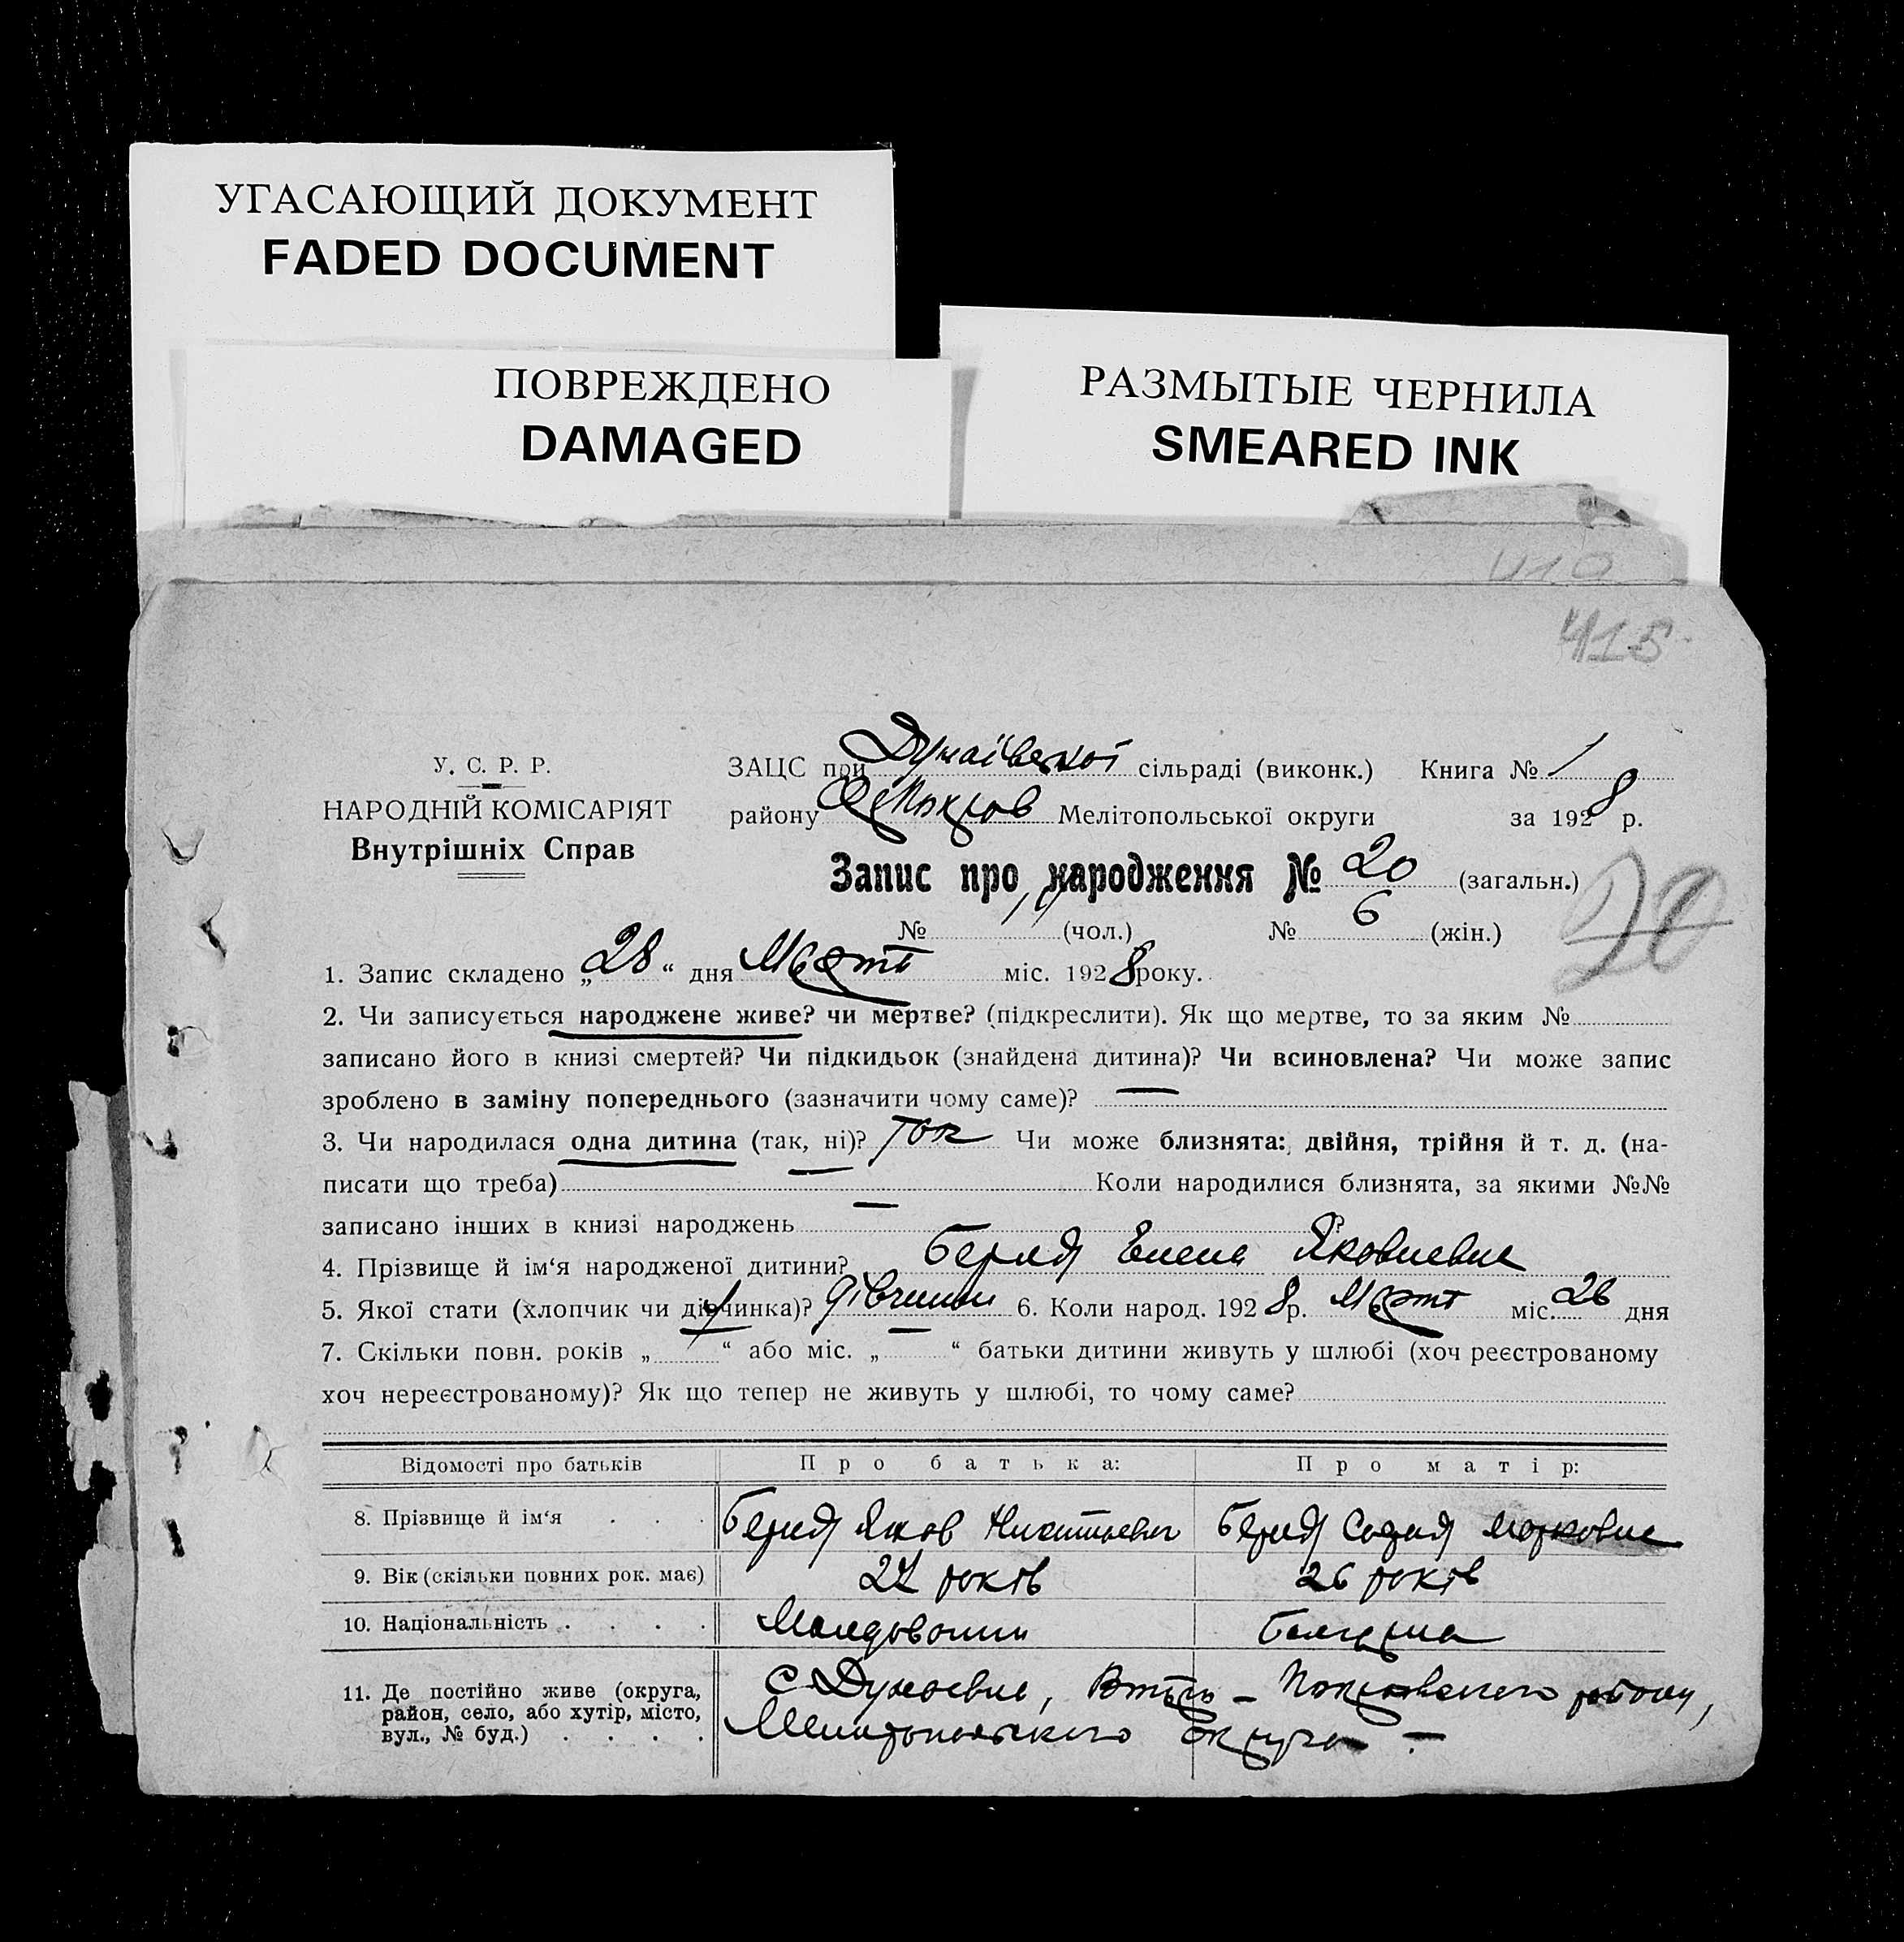 УГАСАЮЩИЙ ДОКУМЕНТ
FADED DOCUMENT
ПОВРЕЖДЕНО
DAMAGED
РАЗМЫТЫЕ ЧЕРНИЛА
SMEARED INK
415
У. С. Р. Р.
НАРОДНІЙ КОМІСАРІЯТ
Внутрішніх Справ
ЗАЦС при Дунаївської сільраді (виконк.) Книга № 1
району Мелітопольської округи за 1928 р.
Запис про народження № 20 (загальн.)
20
№ (чол.) № 6 (жін.)
1. Запис складено „28“ дня Марта міс. 1928 року.
2. Чи записується народжене живе? чи мертве? (підкреслити). Як що мертве, то за яким №
записано його в книзі смертей? Чи підкидьок (знайдена дитина)? Чи всиновлена? Чи може запис
зроблено в заміну попереднього (зазначити чому саме)? —
3. Чи народилася одна дитина (так, ні)? так Чи може близнята: двійня, трійня й т. д. (на-
писати що треба) — Коли народилися близнята, за якими №№
записано інших в книзі народжень — ?
4. Прізвище й ім‘я народженої дитини? Елена Яковлевна
5. Якої стати (хлопчик чи дівчинка)? дівчинка 6. Коли народ. 1928 р. Марта міс. 26 дня
7. Скільки повн. років „ “ або міс. „ “ батьки дитини живуть у шлюбі (хоч реєстрованому
хоч нереєстрованому)? Як що тепер не живуть у шлюбі, то чому саме?
Відомості про батьків Про батька: Про матір:
8. Прізвище й ім‘я . . . Яков Никитович София Марковна
9. Вік (скільки повних рок. має) 27 років 26 років
10. Національність . . . . Молдованин Болгарка
11. Де постійно живе (округа, с Дунаевка, Покровского району,
район, село, або хутір, місто,
вул., № буд.) . . . . Мелитопольского округа —